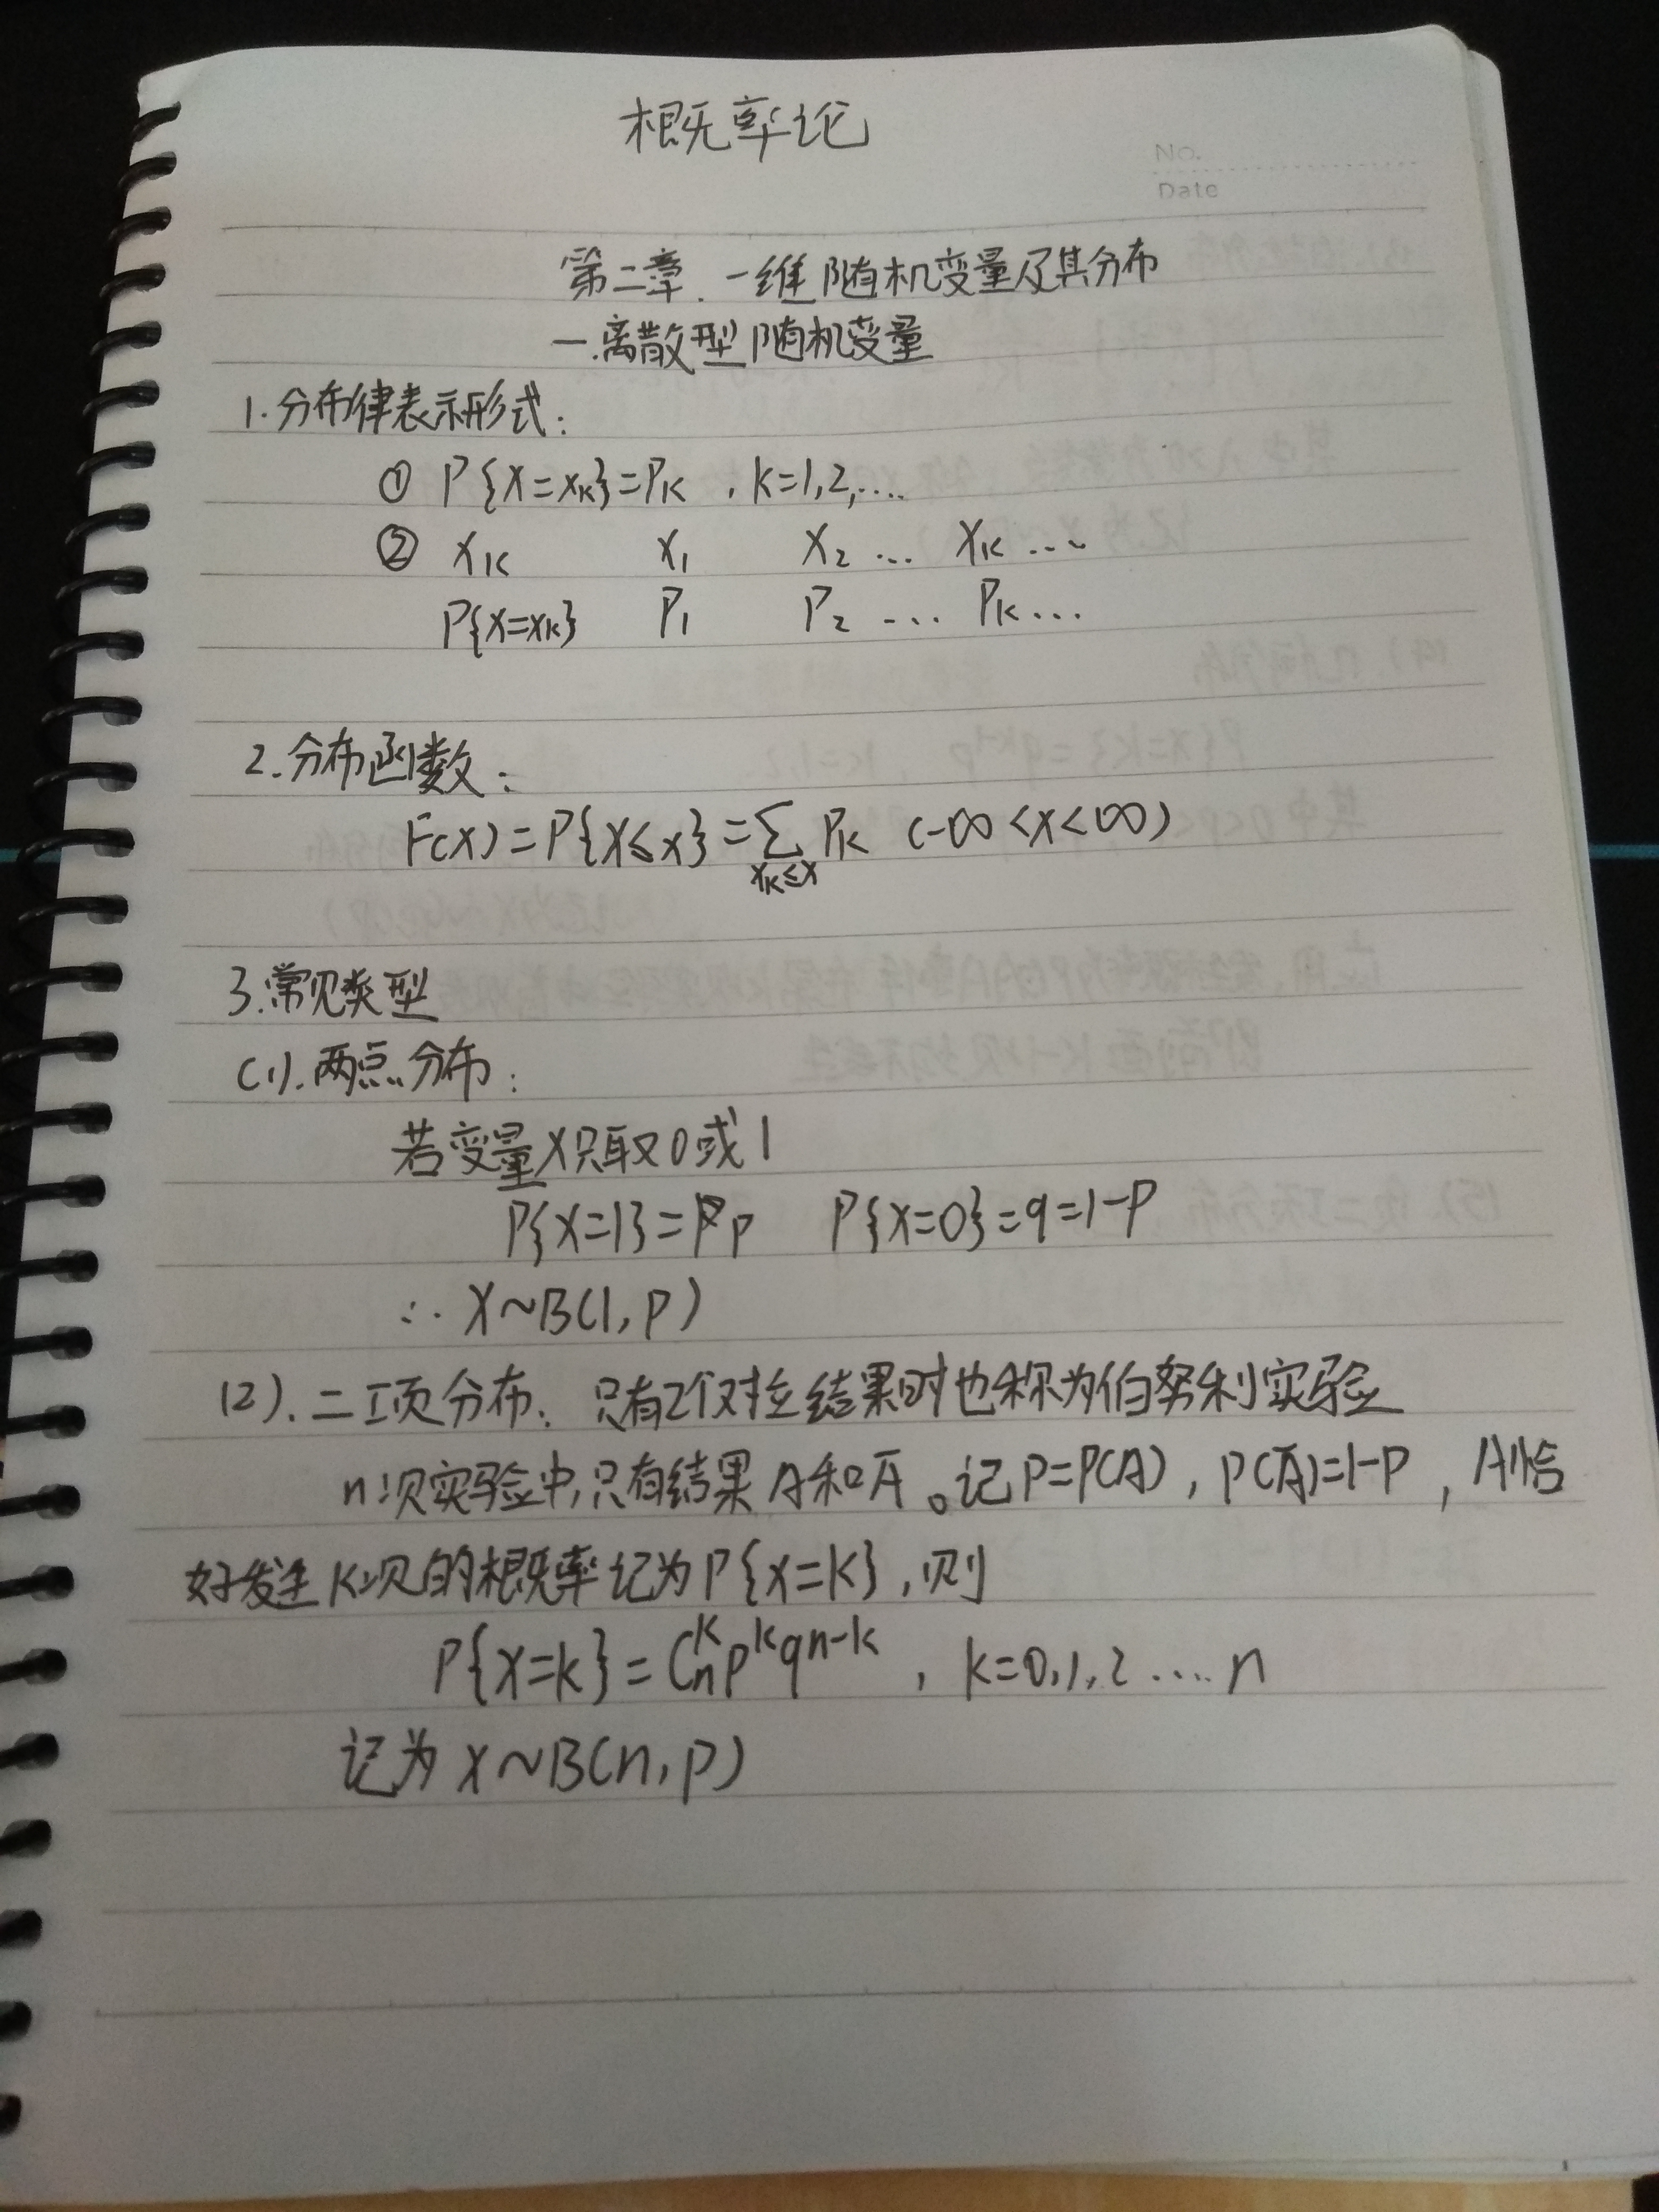 概率论
No.
Date
第二章.一维随机变量及其分布
一.离散型随机变量
1.分布律表示形式:
① P{X=xₖ}=Pₖ , k=1,2,....
② xₖ x₁ x₂ ... xₖ ....
P{X=xₖ} P₁ P₂ ... Pₖ ...
2.分布函数:
F(x)=P{X≤x}=∑ Pₖ (-∞<x<∞)
xₖ≤x
3.常见类型
(1).两点分布:
若变量X只取0或1
P{X=1}=p P{X=0}=q=1-p
∴ X~B(1,p)
(2).二项分布:只有2个对立结果时也称为伯努利实验
n次实验中,只有结果A和A̅。记P=P(A),P(A̅)=1-P,A恰
好发生k次的概率记为P{X=k},则
P{X=k}=Cₙᵏpᵏqⁿ⁻ᵏ , k=0,1,2....n
记为X~B(n,p)